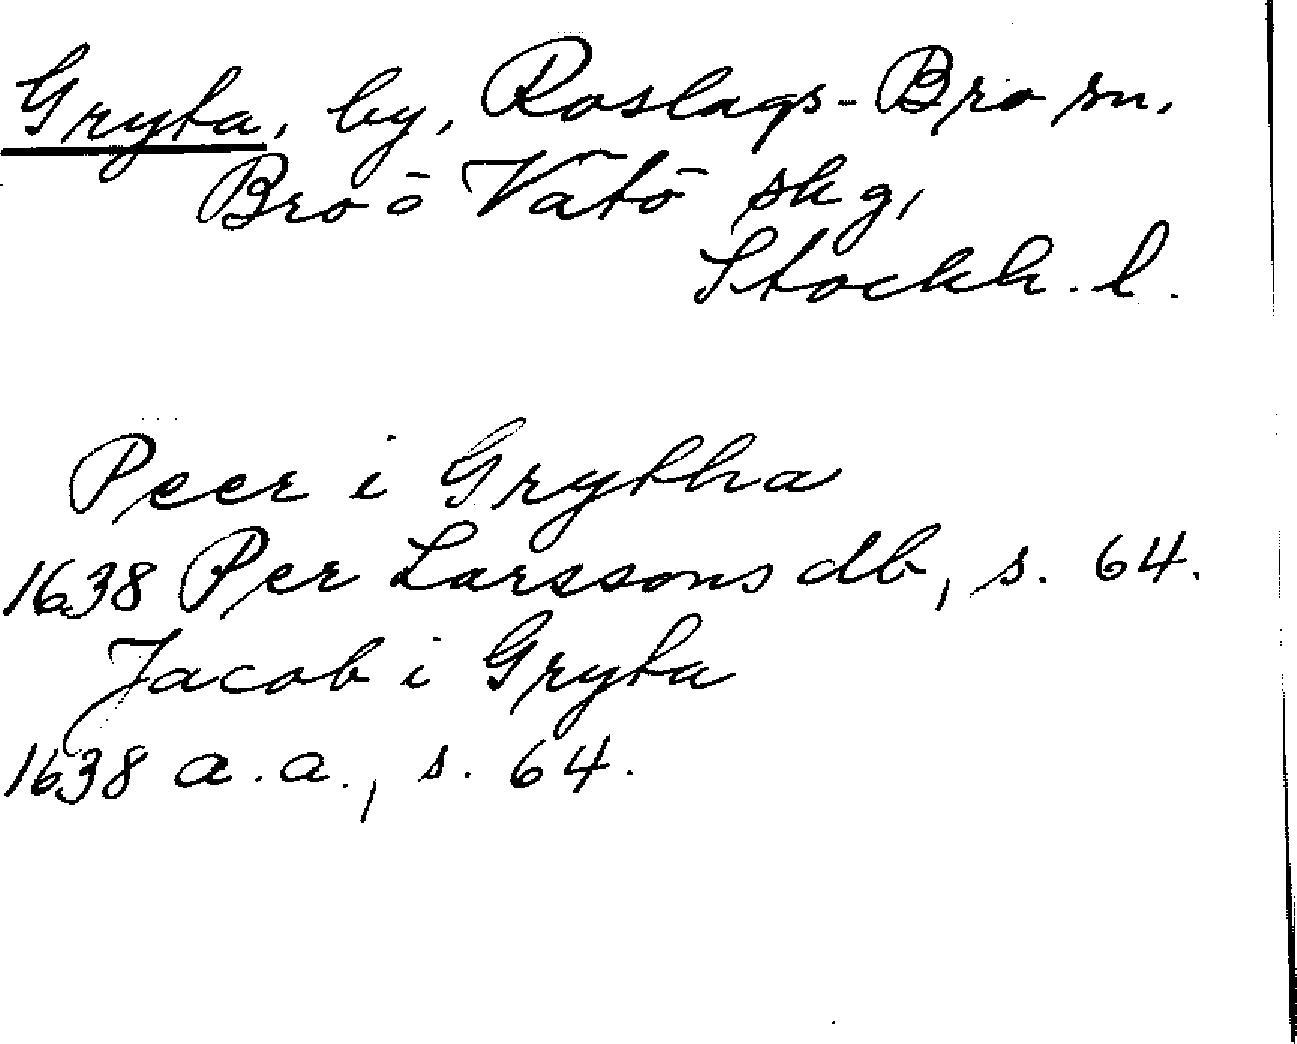 Gryta, by, Roslags-Bro sn,
Bro o Vätö skg,
Stockh. l.
Peer i Grytha
1638 Per Larssons db, s. 64.
Jacob i Gryta
1638 a.a., s. 64.